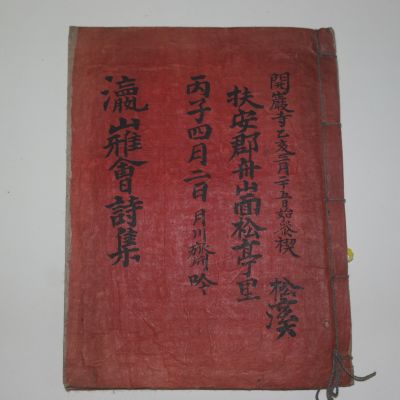 開巖寺乙亥三月二十五日始發稧
松溪
扶安郡舟山面松亭里
丙子四月二日月川齋吟
瀛山雅會詩集